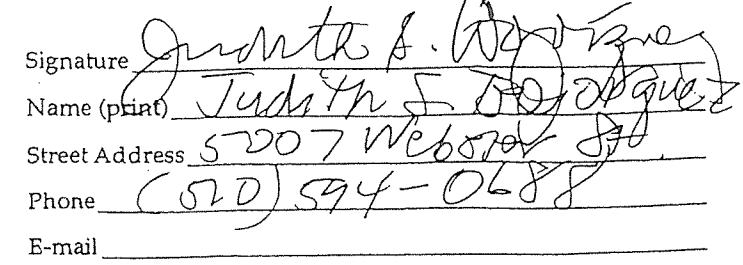 Signature Judith S. Bojorquez
Name (print) Judith S Bojorquez
Street Address 5007 Webster St.
Phone (510) 594-0688
E-mail